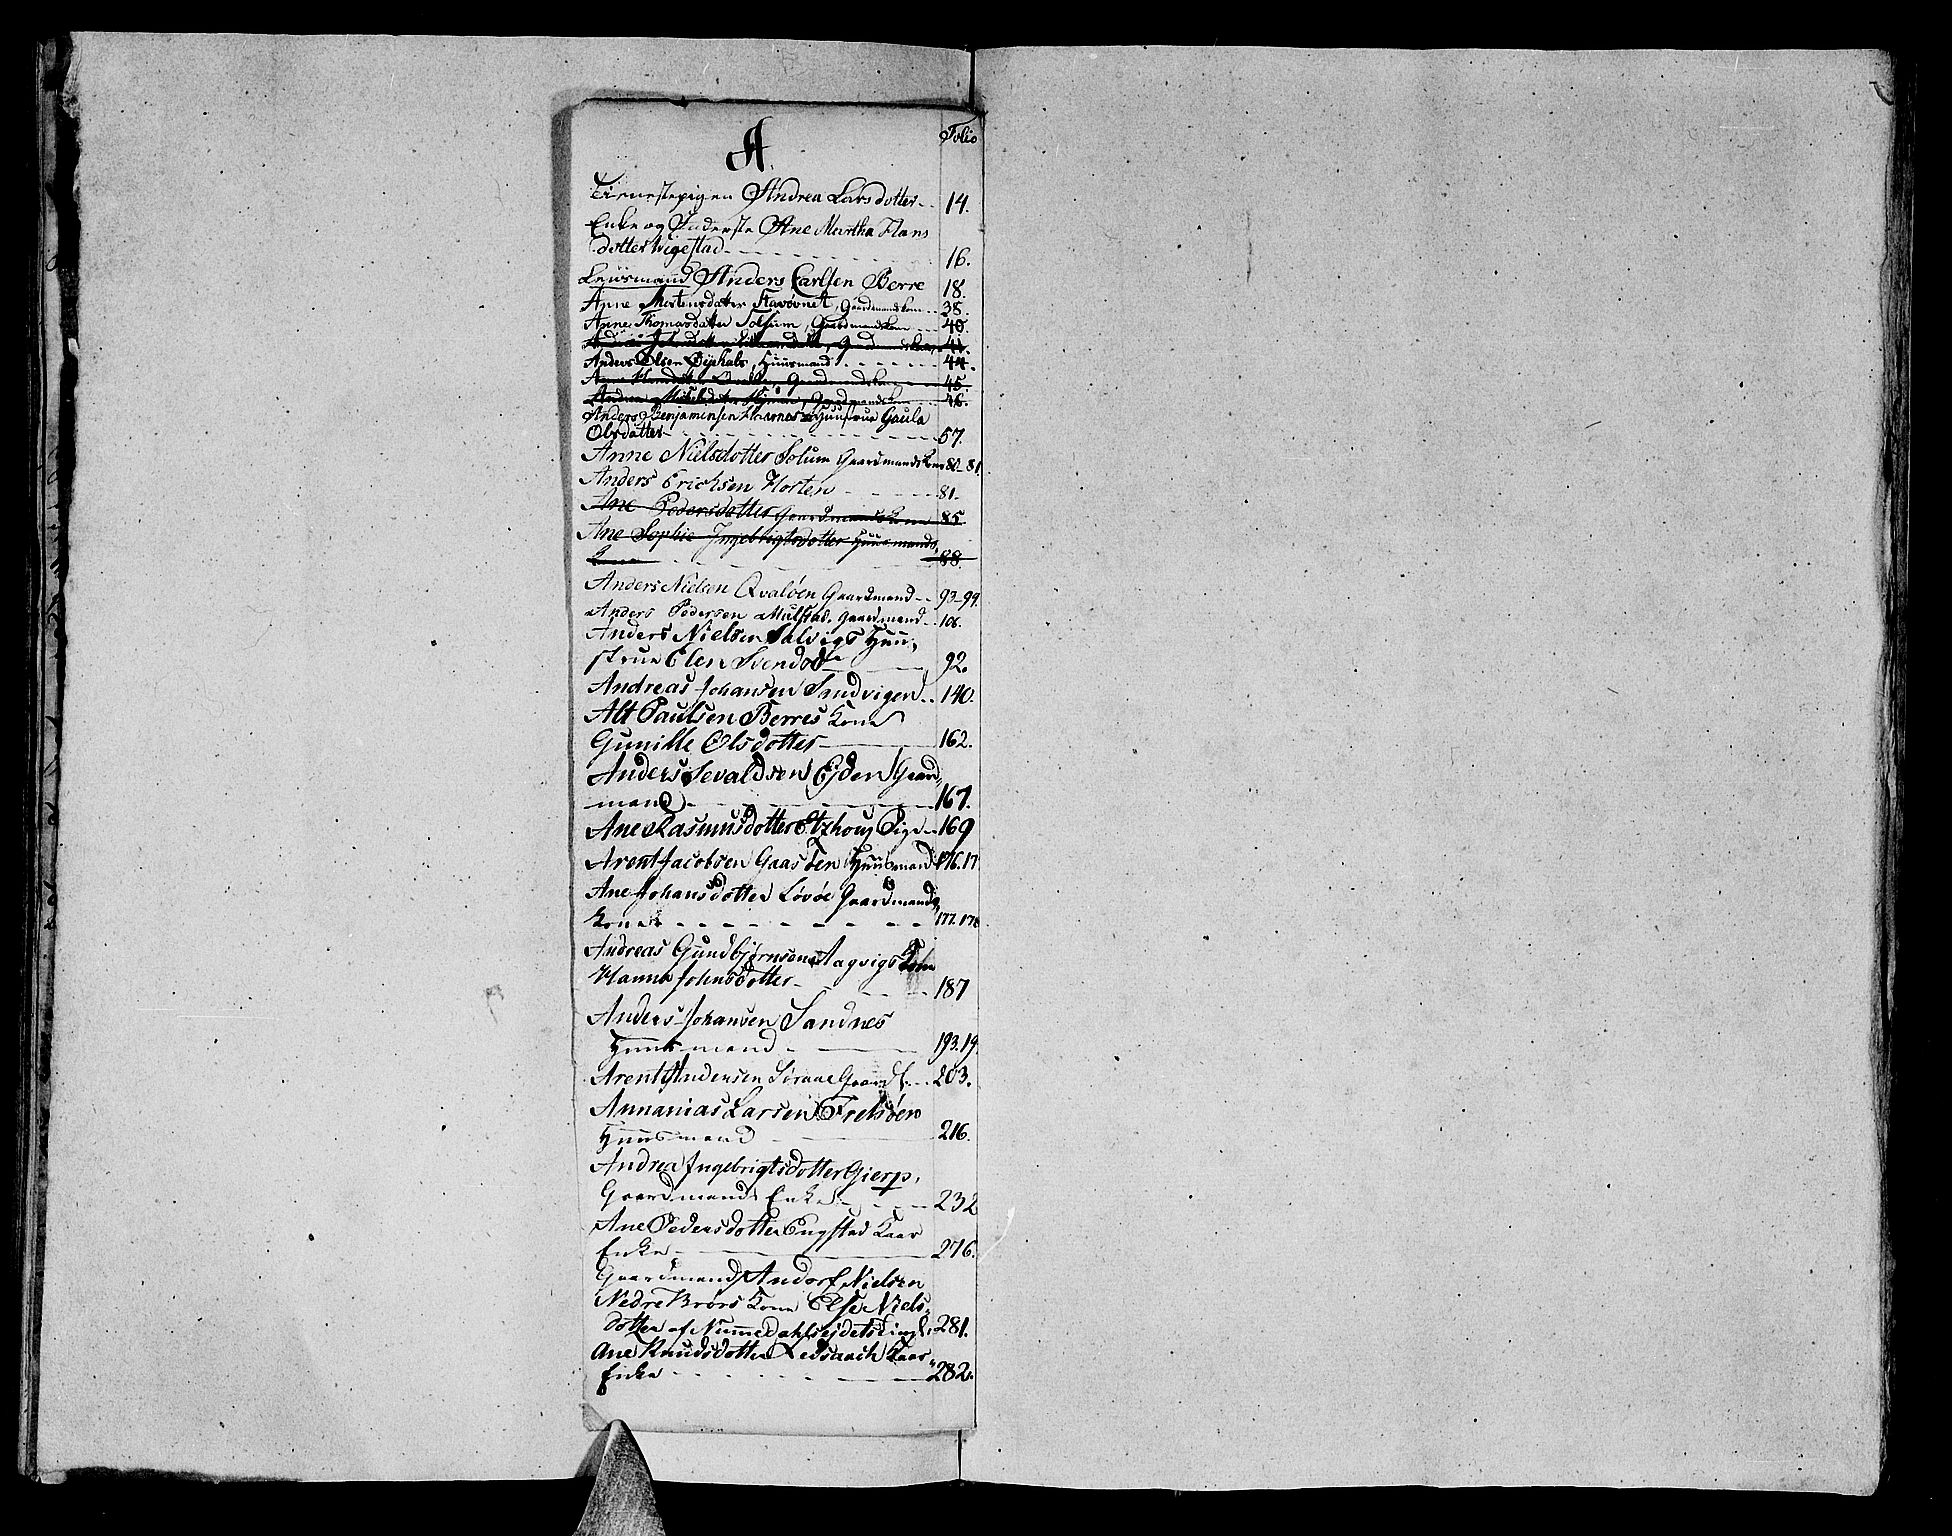 A Folio
Tienestepigen Andrea Larsdotter 14.
Enke og Inderste Ane Martha Hans
dotter Wigestad 16.
Leüsmand Anders Carlsen Berre 18.
Anne Mortensdater, Gaardmandskone 38.
Anne Thomasdater Solsum, Gaardmandskone 40.
Gaardmandskone 41.
Anders Olsen, Huusmand 44.
Anne, Gaardmandskone 45.
Gaardmandskone 46.
Anders Benjaminsen Hustrue Gaula
Olsdatter 57.
Anne Nielsdotter Solum Gaardmandskone 80-81
Anders Erichsen Horten 81.
Ane Pedersdotter Gaardmandskone 85
Ane Sophie Ingebrigtsdotter Huusmands
Kone 88.
Anders Nielsen Qvaløen Gaardmand 93-99.
Anders Pedersen Gaardmand 106.
Anders Nielsen Salvigs Huu
strue Elen Svendsd 92.
Andreas Johansen Sandvigen 140.
Alt Paulsen Berres Kone
Gunille Olsdotter 162.
Anders Sevaldsen Ejden Gaard
mand 167.
Ane Rasmusdotter Pige 169
Arent Jacobsen Gaasøen Huusmand 176.17
Ane Johansdotter Løvøe Gaardmands
Kone 177.178
Andreas Gundbjørnsen Aagvigs Kone
Hanna Johnsdotter 187
Anders Johansen Sandnes
Huusmand 193.19
Arent Andersen Gaardf. 203.
Annanias Larsen Fretsøen
Huusmand 216.
Andrea Ingebrigtsdotter Gierp,
Gaardmands Enke 232
Ane Pedersdotter Engstad Kaar
Enke 276.
Gaardmand Andorf Nielsen
Nedre Brørs Kone Else Niels
dotter af Nummedahlsejdets 281.
Ane Knudsdotter Kaar
Enke 282.